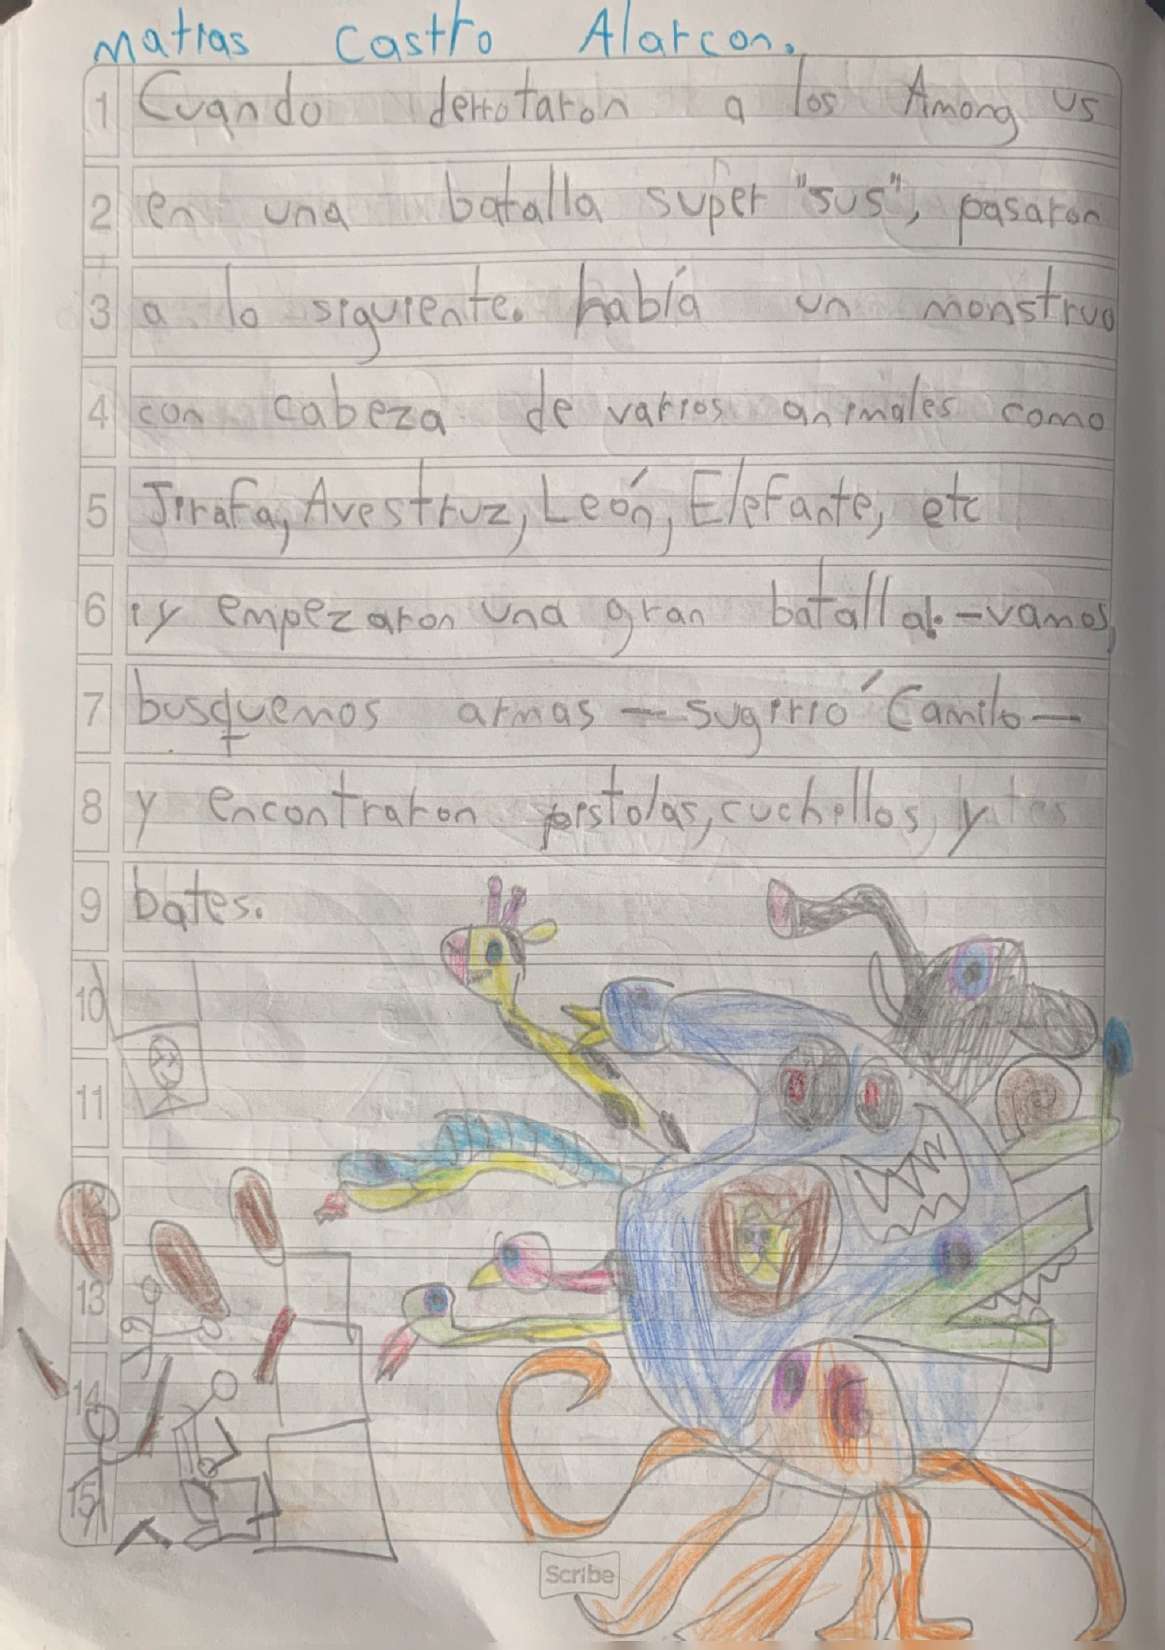 Matias Castro Alarcon.
1 Cuando derrotaron a los Among us
2 en una batalla super "sus", pasaron
3 a lo siguiente. había un monstruo
4 con cabeza de varios animales como
5 Jirafa, Avestruz, León, Elefante, etc
6 y empezaron una gran batalla. -vamos,
7 busquemos armas - sugirió Camilo -
8 y encontraron pistolas, cuchillos, y
9 bates.
10
11
13
14
15
Scribe